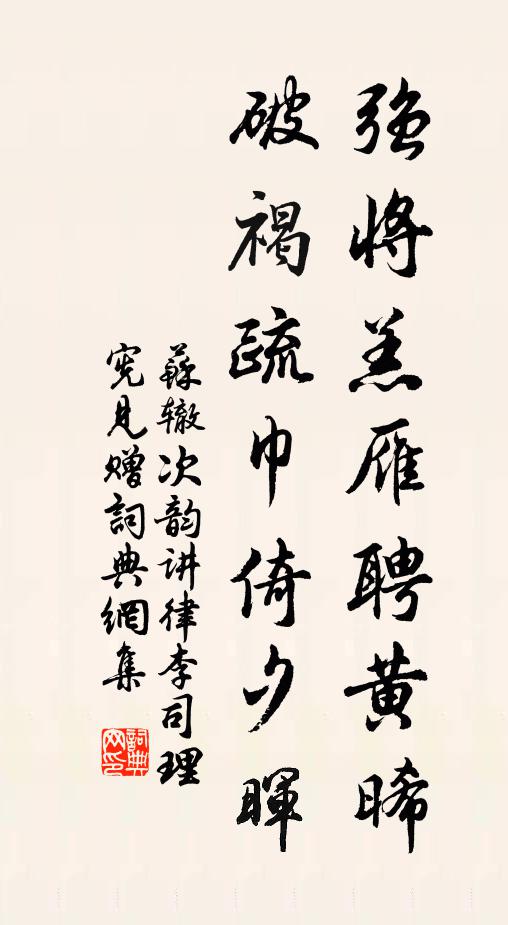 強將羔雁聘黄晞
破褐疏巾倚夕暉
蘇辙次韵讲律李司理
宪見贈詞典網集
詞典
网印